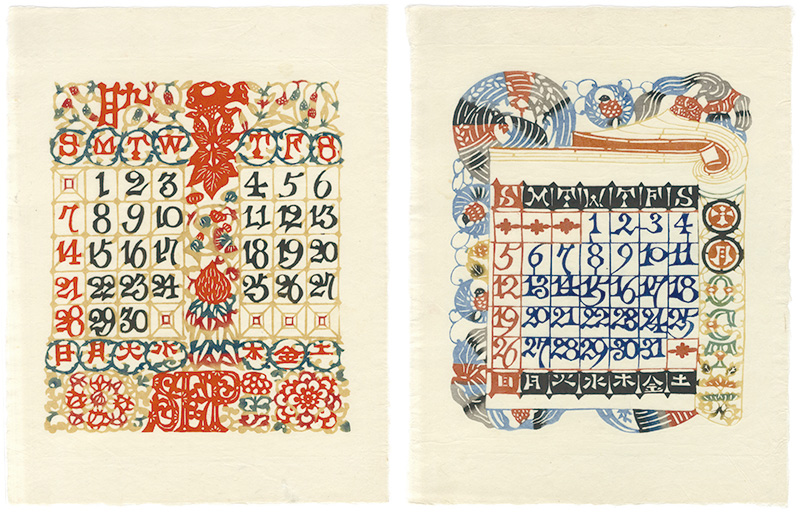 九月
S M T W T F S
1 2 3 4 5 6
7 8 9 10 11 12 13
14 15 16 17 18 19 20
21 22 23 24 25 26 27
28 29 30
日 月 火 水 木 金 土
SEP
S M T W T F S
1 2 3 4
5 6 7 8 9 10 11
12 13 14 15 16 17 18
19 20 21 22 23 24 25
26 27 28 29 30 31
日 月 火 水 木 金 土
十月
OCT